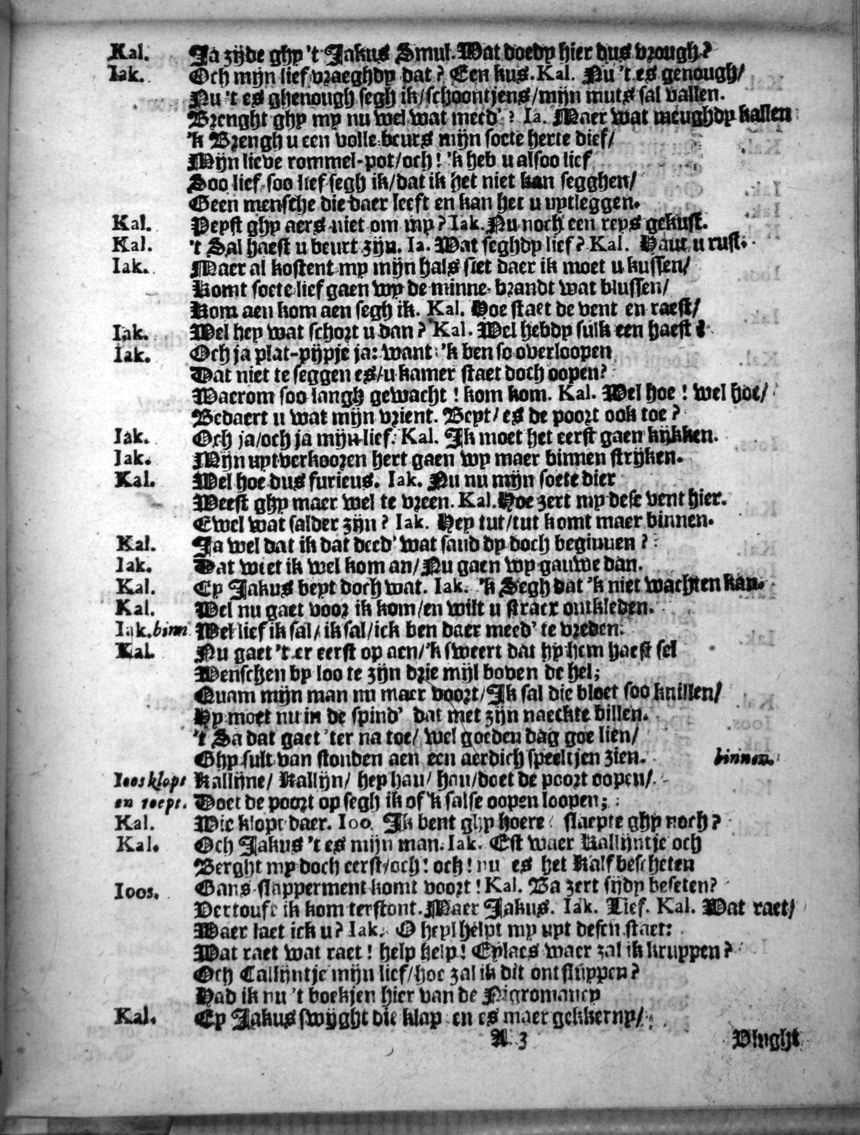 Kal. Ja zijde ghy 't Jakus Smul. Wat doedy hier dus vrough?
Iak. Och mijn lief vraeghdy dat? Een kus. Kal. Nu 't es genough/
Nu 't es ghenough segh ik/schoontjens/mijn muts sal vallen.
Brenght ghy my nu wel wat meed'? Ia. Maer wat meughdy kallen
'k Brengh u een volle beurs mijn soete herte dief/
Mijn lieve rommel-pot/och! 'k heb u alsoo lief
Soo lief soo lief segh ik/dat ik het niet kan segghen/
Geen mensche die daer leeft en kan het u uytleggen.
Kal. Peyst ghy aers niet om my? Iak. Nu noch een reys gekust.
Kal. 't Sal haest u beurt zijn. Ia. Wat seghdy lief? Kal. Haut u rust.
Iak. Maer al kostent my mijn hals siet daer ik moet u kussen/
Komt soete lief gaen wy de minne-brandt wat blussen/
Kom aen kom aen segh ik. Kal. Hoe staet de vent en raest/
Iak. Wel hey wat schort u dan? Kal. Wel hebdy sulk een haest?
Iak. Och ja plat-pijpje ja: want 'k ben so overloopen
Dat niet te seggen es/u kamer staet doch oopen?
Waerom soo langh gewacht! kom kom. Kal. Wel hoe! wel hoe/
Bedaert u wat mijn vrient. Beyt/ es de poort ook toe?
Iak. Och ja/och ja mijn lief. Kal. Ik moet het eerst gaen kijkken.
Iak. Mijn uytverkooren hert gaen wy maer binnen strijken.
Kal. Wel hoe dus furieus. Iak. Nu nu mijn soete dier
Weest ghy maer wel te vreen. Kal. Hoe zert my dese vent hier.
Ewel wat salder zijn? Iak. Hey tut/tut komt maer binnen.
Kal. Ja wel dat ik dat deed' wat saud dy doch beginnen?
Iak. Dat wiet ik wel kom an/Nu gaen wy gauwe dan.
Kal. Ey Jakus beyt doch wat. Iak. 'k Segh dat 'k niet wachten kan.
Kal. Wel nu gaet voor ik kom/en wilt u stracx ontkleden.
Iak. binn Wel lief ik sal/ik sal/ick ben daer meed' te vreden.
Kal. Nu gaet 't er eerst op aen/'k sweert dat hy hem haest sel
Wenschen by loo te zijn drie mijl boven de hel;
Quam mijn man nu maer voort/Ik sal die bloet soo knillen/
Hy moet nu in de spind' dat met zijn naeckte billen.
't Sa dat gaet 'ter na toe/ wel goeden dag goe lien/
Ghy sult van stonden aen een aerdich speeltjen zien. binnen.
Ioos klopt Kallijne/ Kallijn/ hey hau/ hau/doet de poort oopen/
en roept. Doet de poort op segh ik of 'k salse oopen loopen;
Kal. Wie klopt daer. Ioo. Ik bent ghy hoere slaepte ghy noch?
Kal. Och Jakus 't es mijn man. Iak. Est waer Kallijntje och
Berght my doch eerst/och! och! nu es het Kalf bescheten
Ioos. Gans slapperment komt voort! Kal. Ba zert sijdy beseten?
Vertouft ik kom terstont. Maer Jakus. Iak. Lief. Kal. Wat raet/
Waer laet ick u? Iak. O heyl helpt my uyt desen staet:
Wat raet wat raet! help help! Eylaes waer zal ik kruppen?
Och Callijntje mijn lief/hoe zal ik dit ontslippen?
Had ik nu 't boekjen hier van de Nigromancy
Kal. Ey Jakus swijght die klap en es maer gekkerny/
A 3 Vlught